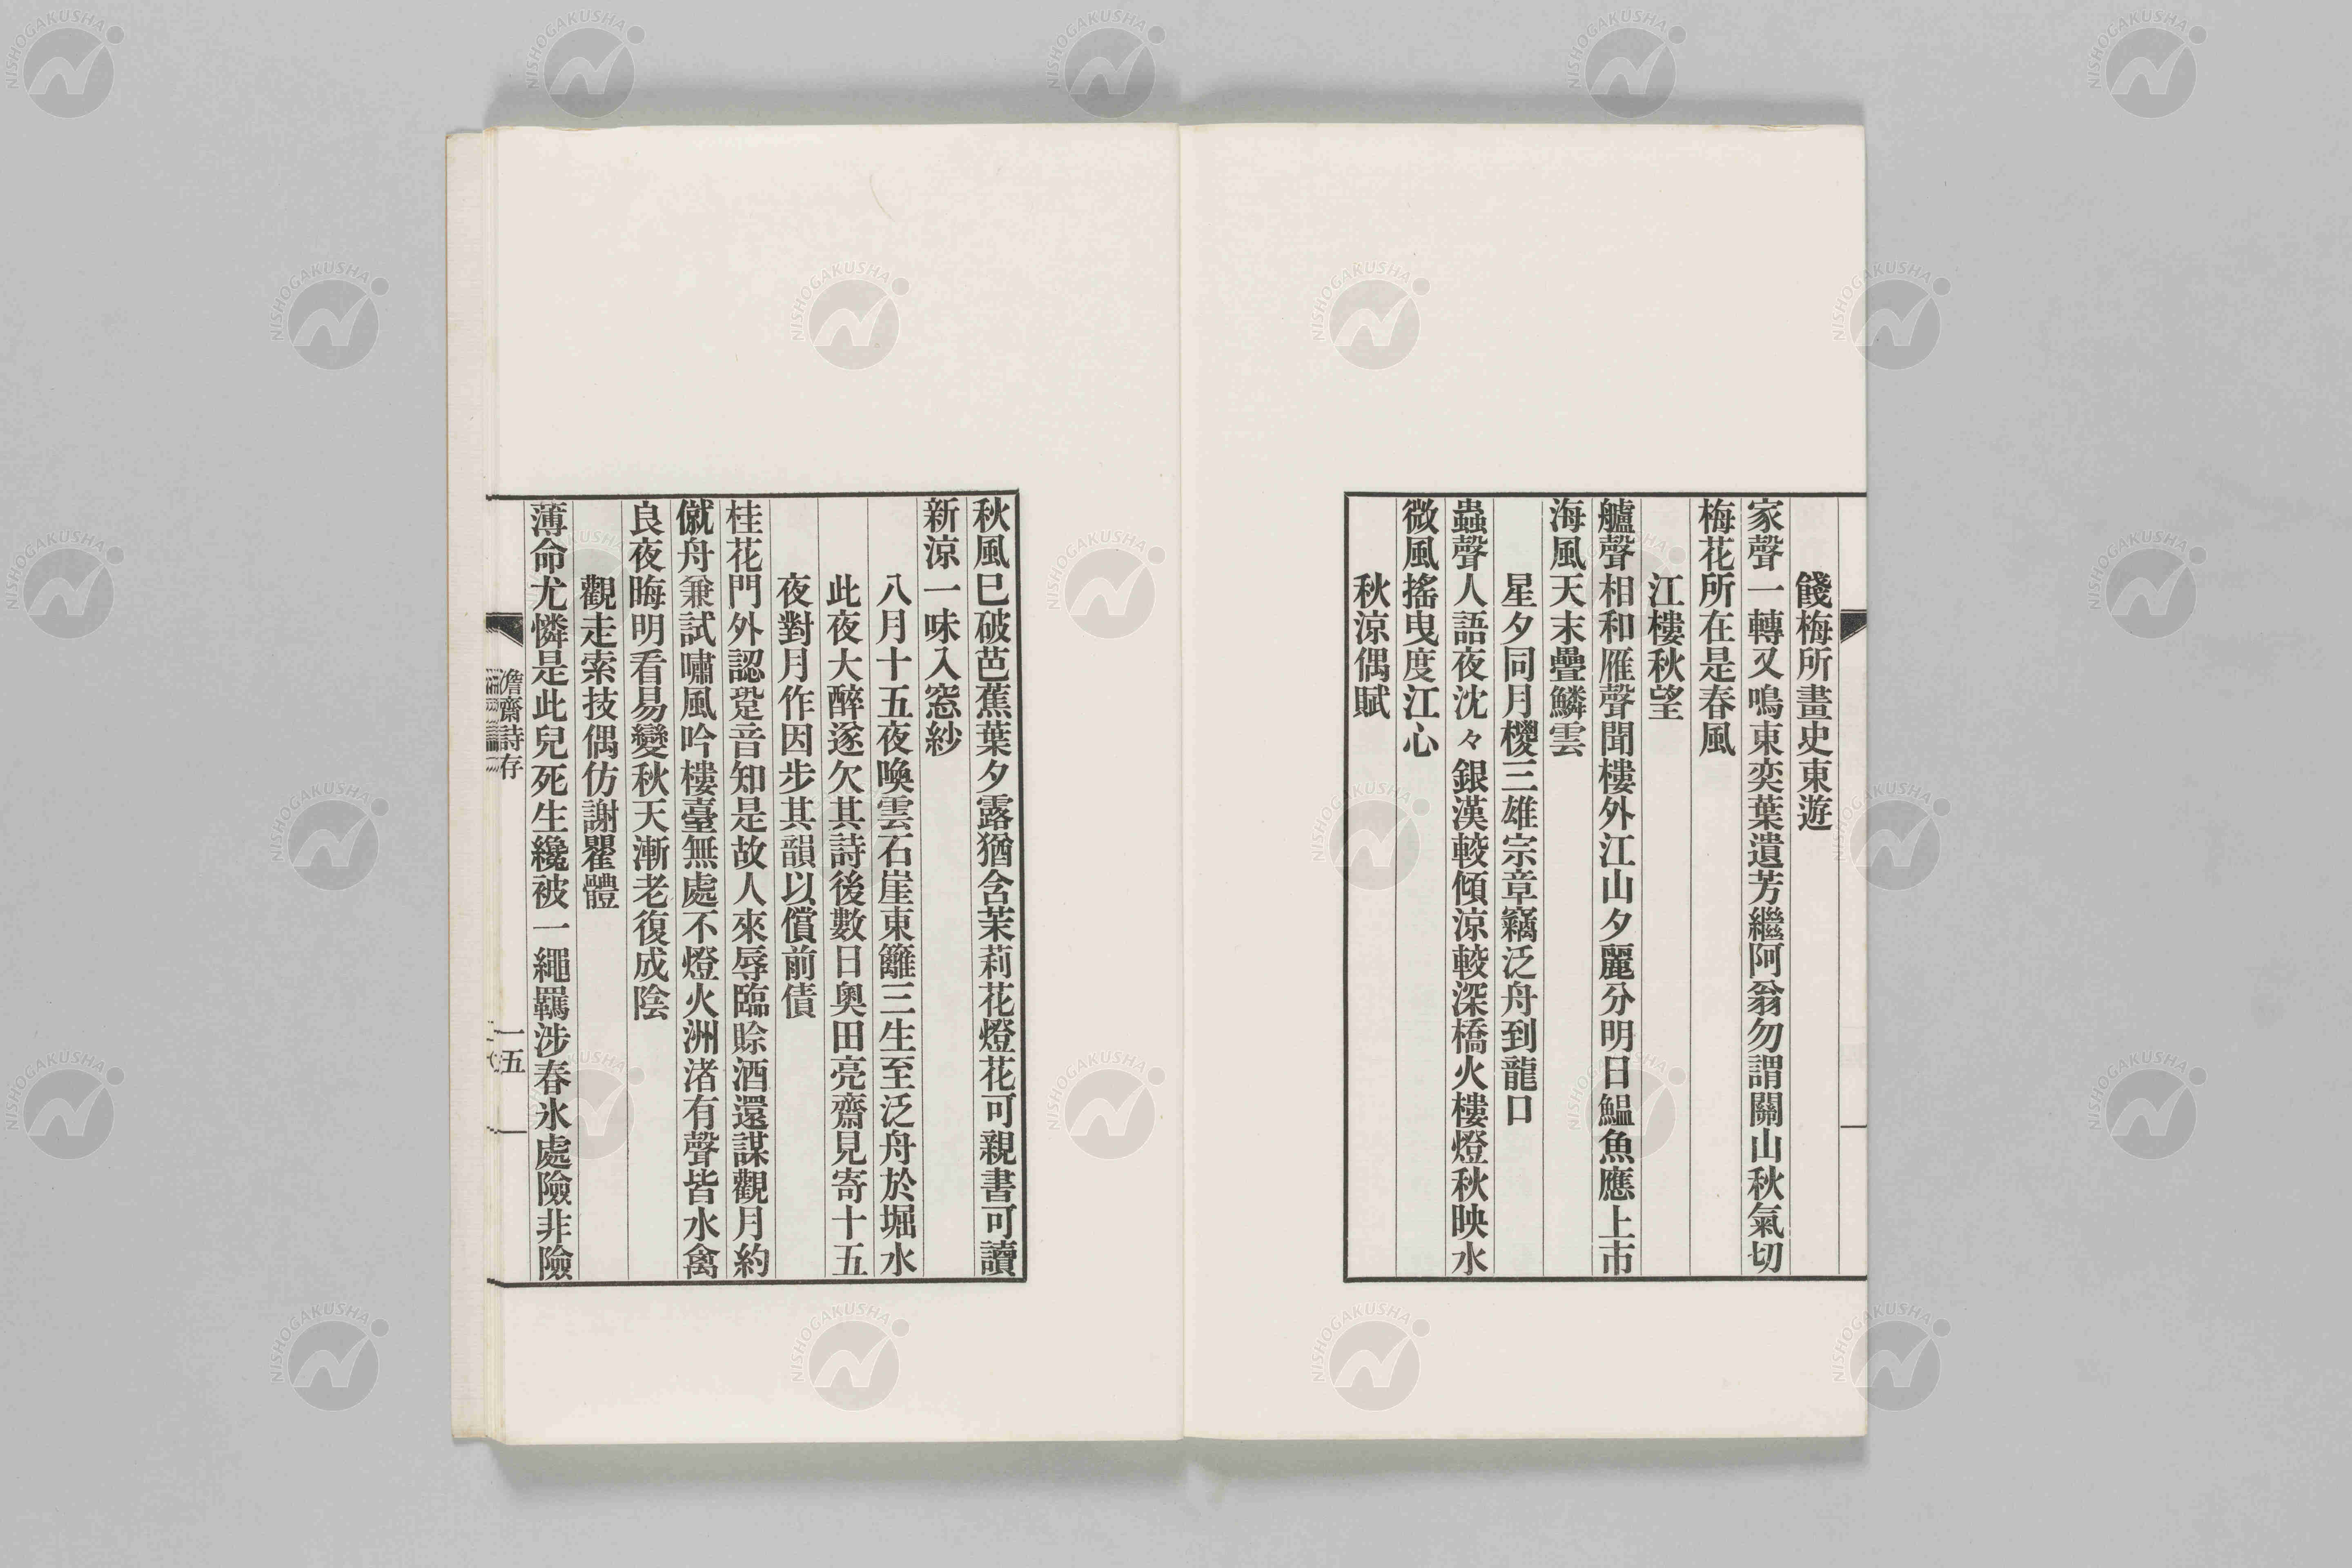 餞梅所畫史東遊
家聲一轉又鳴東奕葉遺芳繼阿翁勿謂關山秋氣切
梅花所在是春風
江樓秋望
艫聲相和雁聲聞樓外江山夕麗分明日鰛魚應上市
海風天末疊鱗雲
星夕同月樱三雄宗章竊泛舟到龍口
蟲聲人語夜沈々銀漢較傾涼較深橋火樓燈秋映水
微風搖曳度江心
秋涼偶賦
秋風已破芭蕉葉夕露猶含茉莉花燈花可親書可讀
新涼一味入窓紗
八月十五夜喚雲石崖東籬三生至泛舟於堀水
此夜大醉逐欠其詩後數日奧田亮齋見寄十五
夜對月作因步其韻以償前債
桂花門外認跫音知是故人來辱臨賒酒還謀觀月約
僦舟兼試嘯風吟樓臺無處不燈火洲渚有聲皆水禽
良夜晦明看易變秋天漸老復成陰
觀走索技偶仿謝瞿體
薄命尤憐是此兒死生纔被一繩羈涉春氷處險非險
澹齋詩存
一五
NISHOGAKUSHA